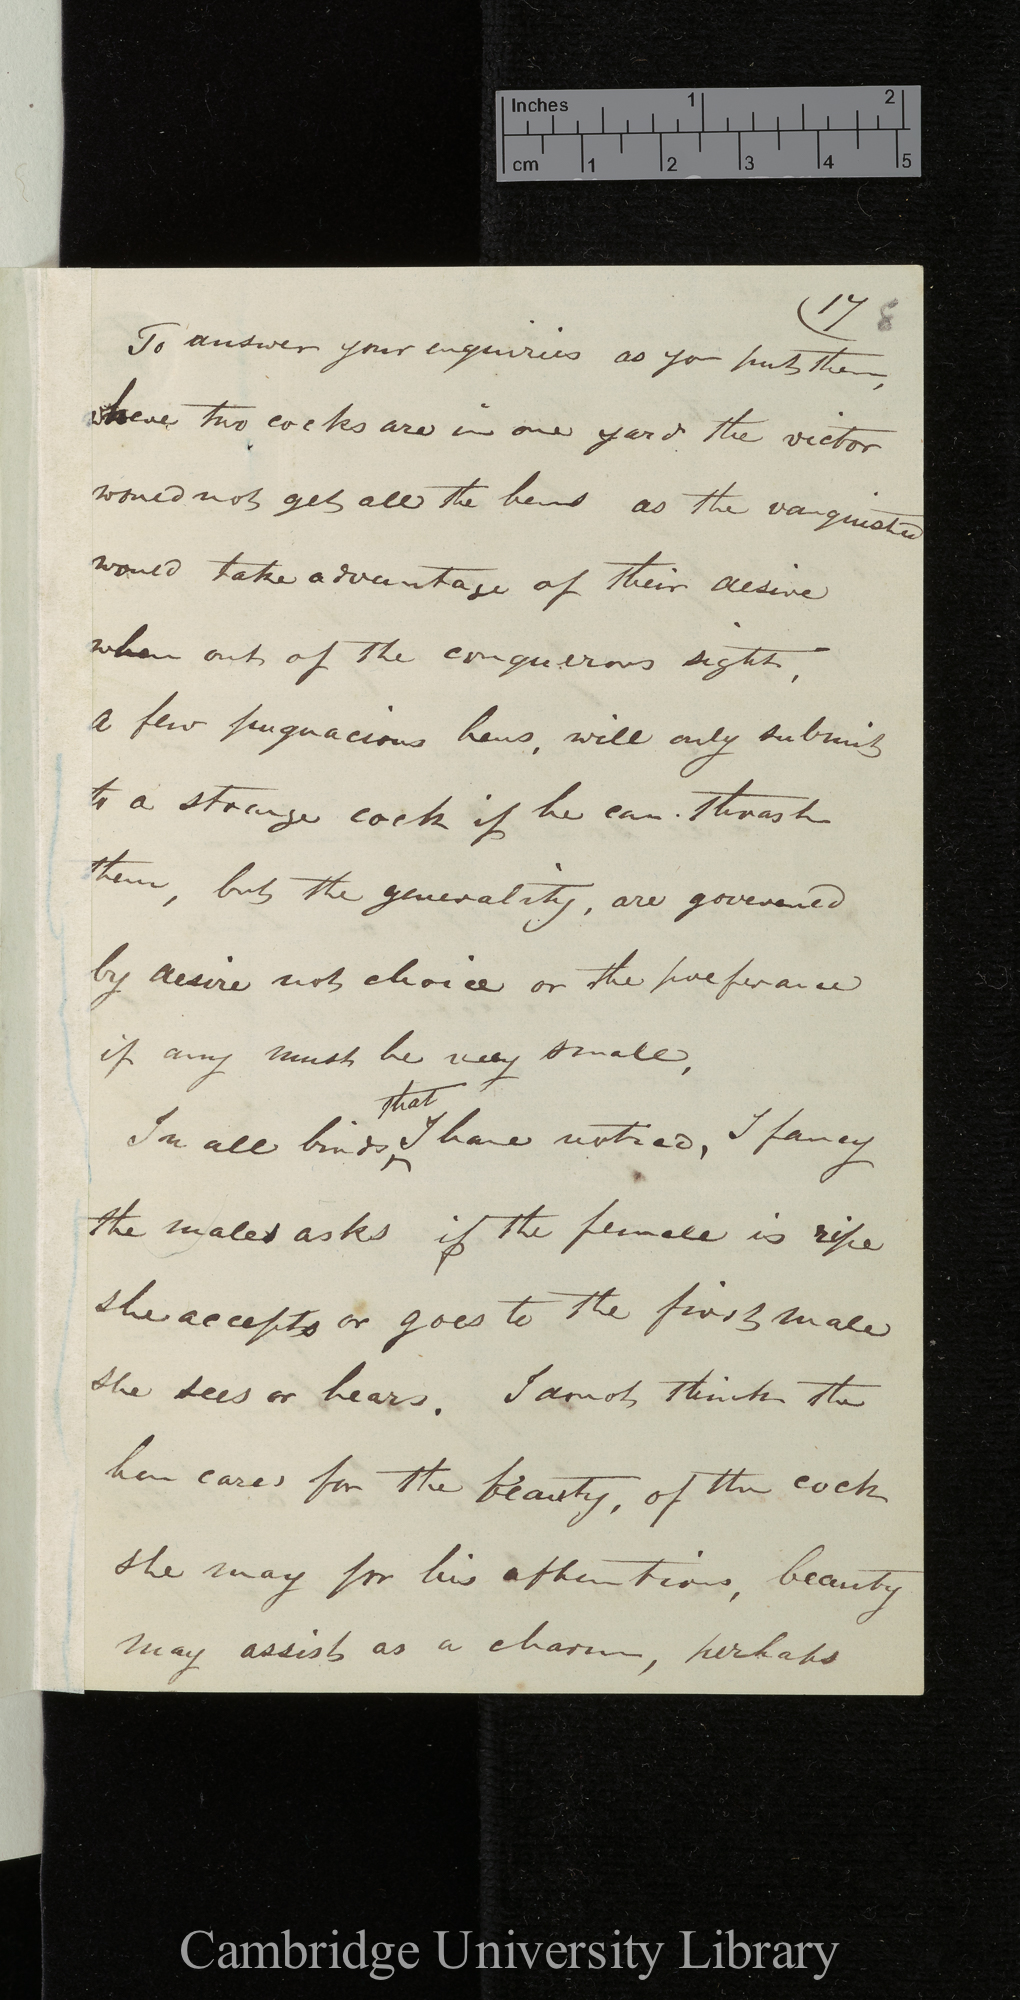 Inches 1 2
cm 1 2 3 4 5
17 8
To answer your enquiries as you put them,
where two cocks are in one yard the victor
would not get all the hens as the vanquished
would take advantage of their desire
when out of the conquerors sight,
a few pugnacious hens, will only submit
to a strange cock if he can thrash
them, but the generality, are governed
by desire not choice or the preferance
if any must be very small,
In all birds, that I have noticed, I fancy
the males asks if the female is ripe
she accepts or goes to the first male
she sees or hears. I donot think the
hen cares for the beauty, of the cock
she may for his attentions, beauty
may assist as a charm, perhaps
Cambridge University Library